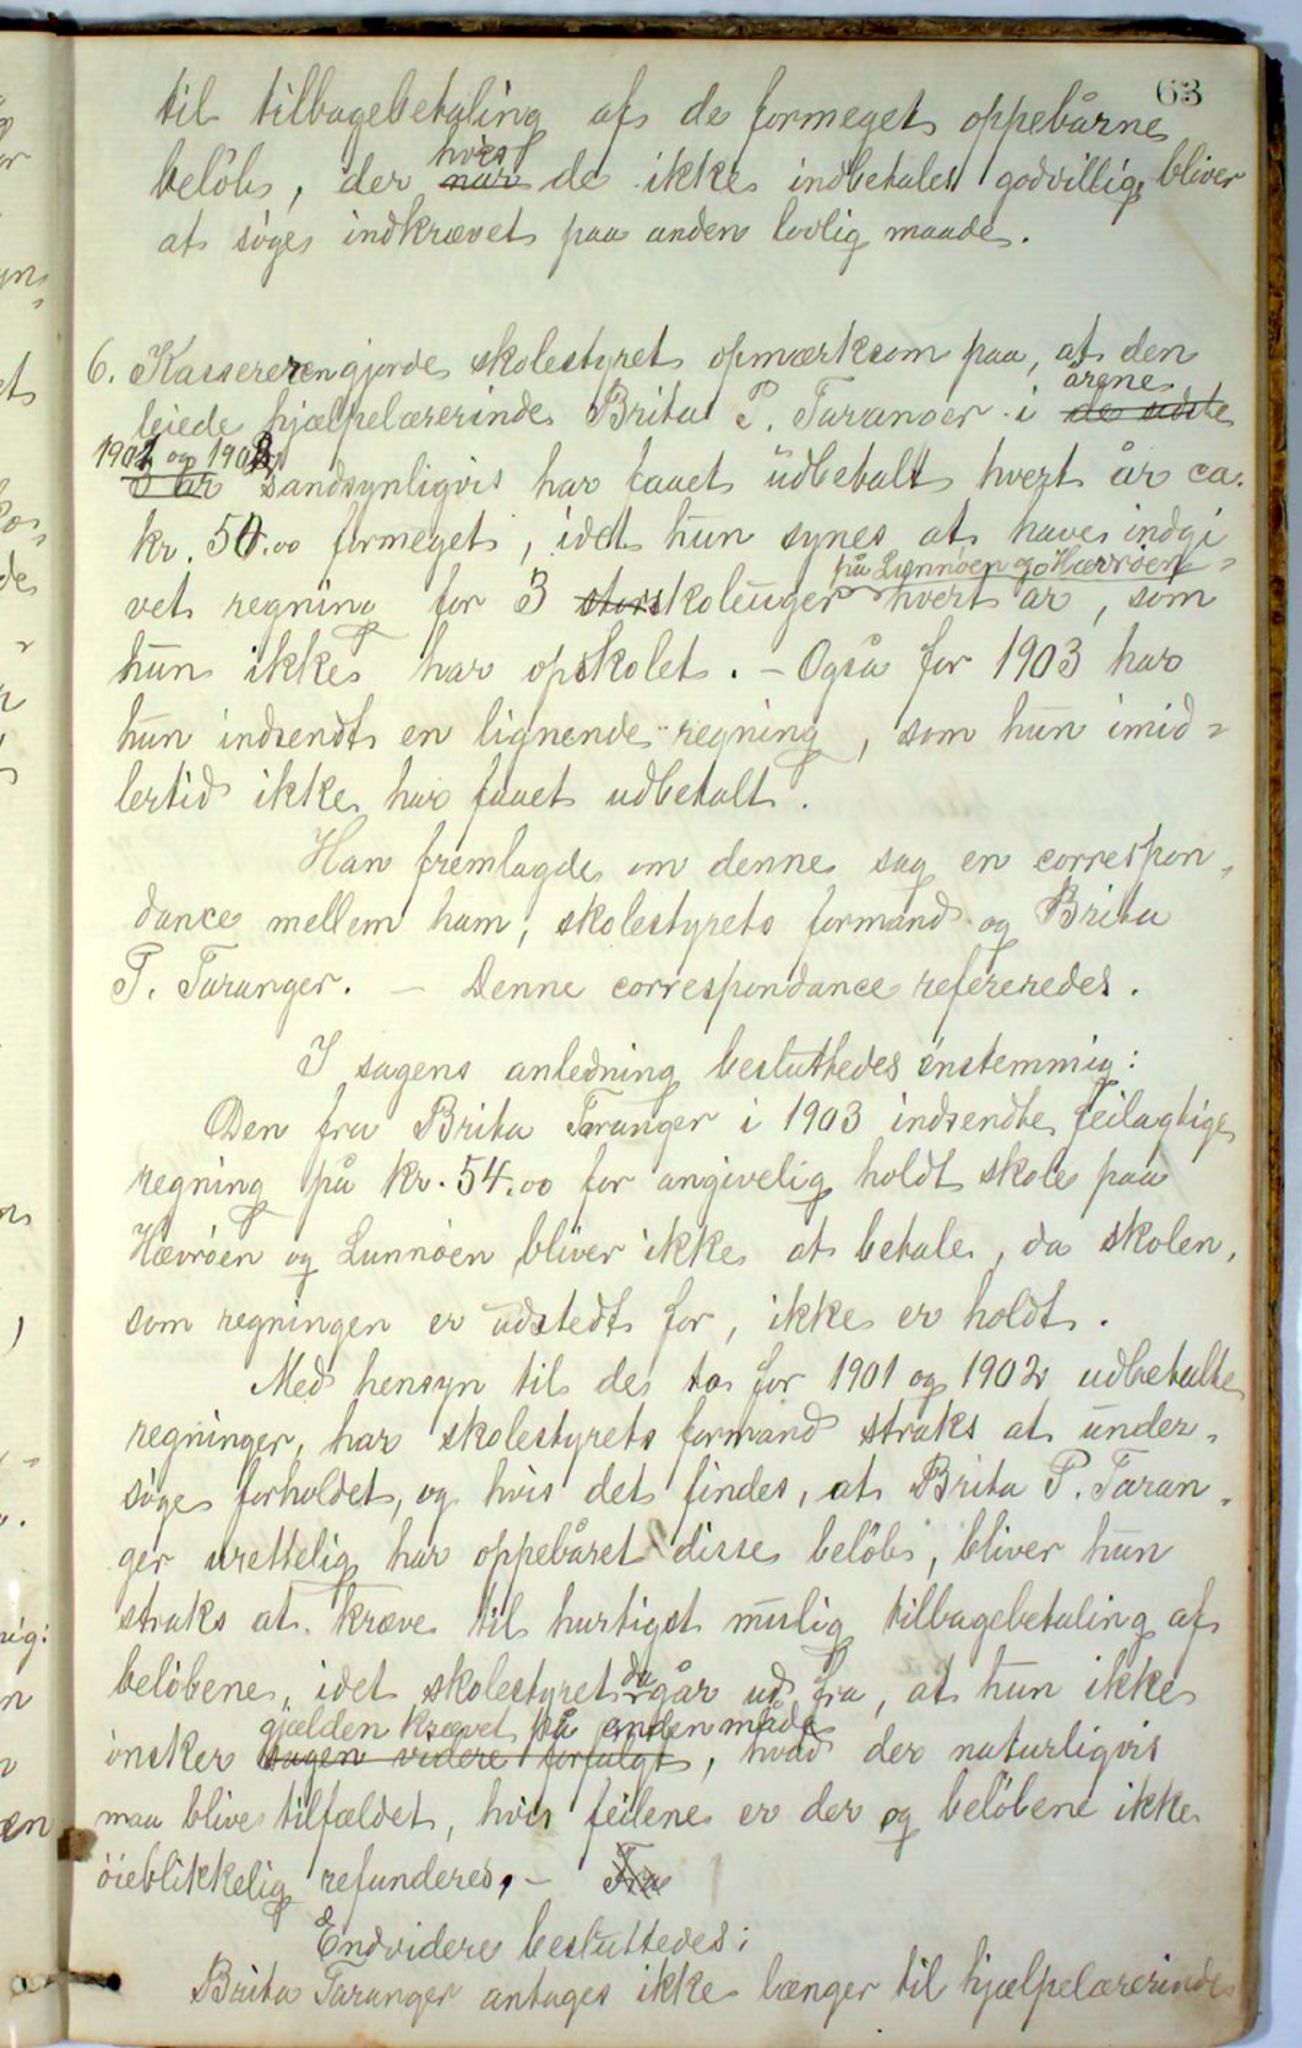 63
til tilbagebetaling af de formeget oppebårne
hvis
beløb, der når de ikke indbetales godvillig, bliver
at søges indkrævet paa anden lovlig maade.
6. Kassereren gjorde skolestyret opmærksom paa, at den
årene
leiede hjælpelærerinde Brita P. Taranger i de sidste
1901 og 1902
3 år sandsynligvis har faaet udbetalt hvert år ca.
kr. 54.00 formeget, idet hun synes at have indgi-
på Lunnøen og Hævrøen
vet regning for 3 storskoleuger hvert år, som
hun ikke har opskolet. – Også for 1903 har
hun indsendt en lignende regning, som hun imid-
lertid ikke har faaet udbetalt.
Han fremlagde om denne sag en correspon-
dance mellem ham, skolestyrets formand og Brita
P. Taranger. – Denne correspondance refereredes.
I sagens anledning besluttedes enstemmig:
Den fra Brita Taranger i 1903 indsendte feilagtige
regning på kr. 54.00 for angivelig holdt skole paa
Hævrøen og Lunnøen bliver ikke at betale, da skolen,
som regningen er udstedt for, ikke er holdt.
Med hensyn til de to for 1901 og 1902 udbetalte
regninger, har skolestyrets formand straks at under-
søge forholdet, og hvis det findes, at Brita P. Taran-
ger urettelig har oppebåret disse beløb, bliver hun
straks at kræve til hurtigst mulig tilbagebetaling af
da
beløbene, idet skolestyret går ud fra, at hun ikke
gjælden krævet på anden måde
ønsker sagen videre forfulgt, hvad der naturligvis
maa blive tilfældet, hvis feilene er der og beløbene ikke
øieblikkelig refunderes. – Fra
Endvidere besluttedes:
Brita Taranger antages ikke længer til hjælpelærerinde